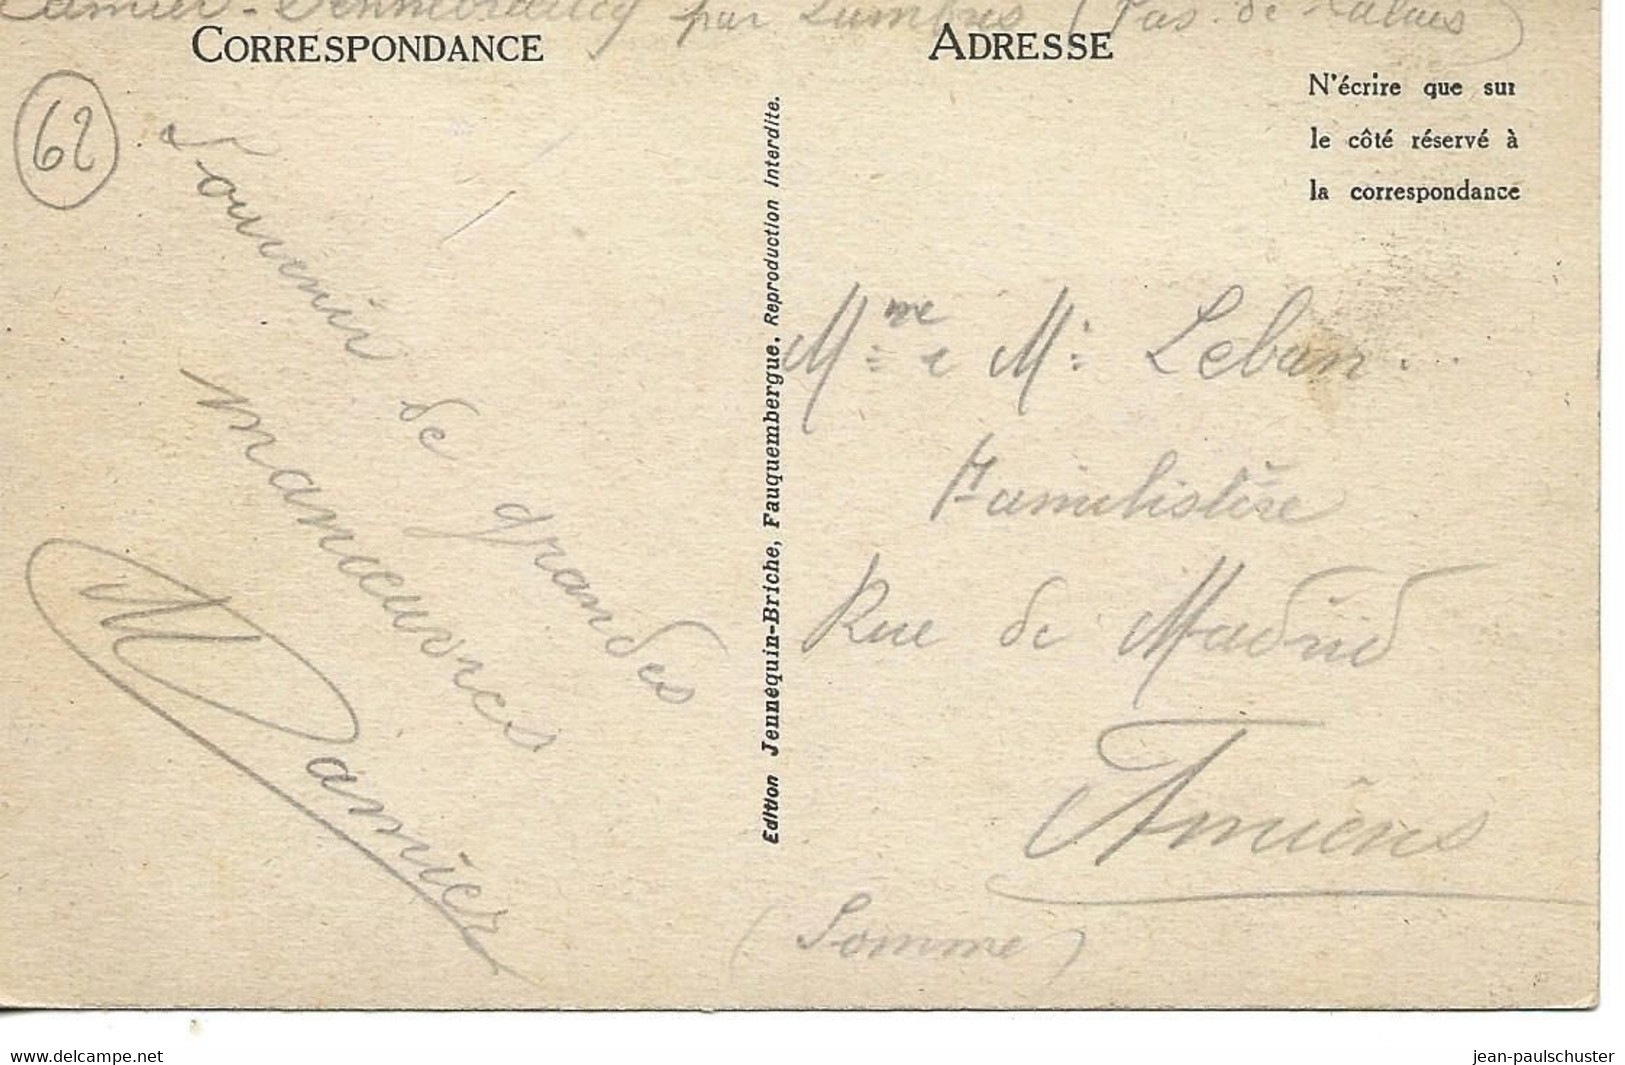 par Lumbres (Pas-de-Calais)
CORRESPONDANCE
ADRESSE
N'écrire que sur
le côté réservé à
la correspondance
62
Souvenir de grandes
manœuvres
Damier
Edition Jennequin-Briche, Fauquembergue. Reproduction Interdite.
Mme e Mr Lebun
Familistère
Rue de Madrid
Amiens
(Somme)
www.delcampe.net
jean-paulschuster